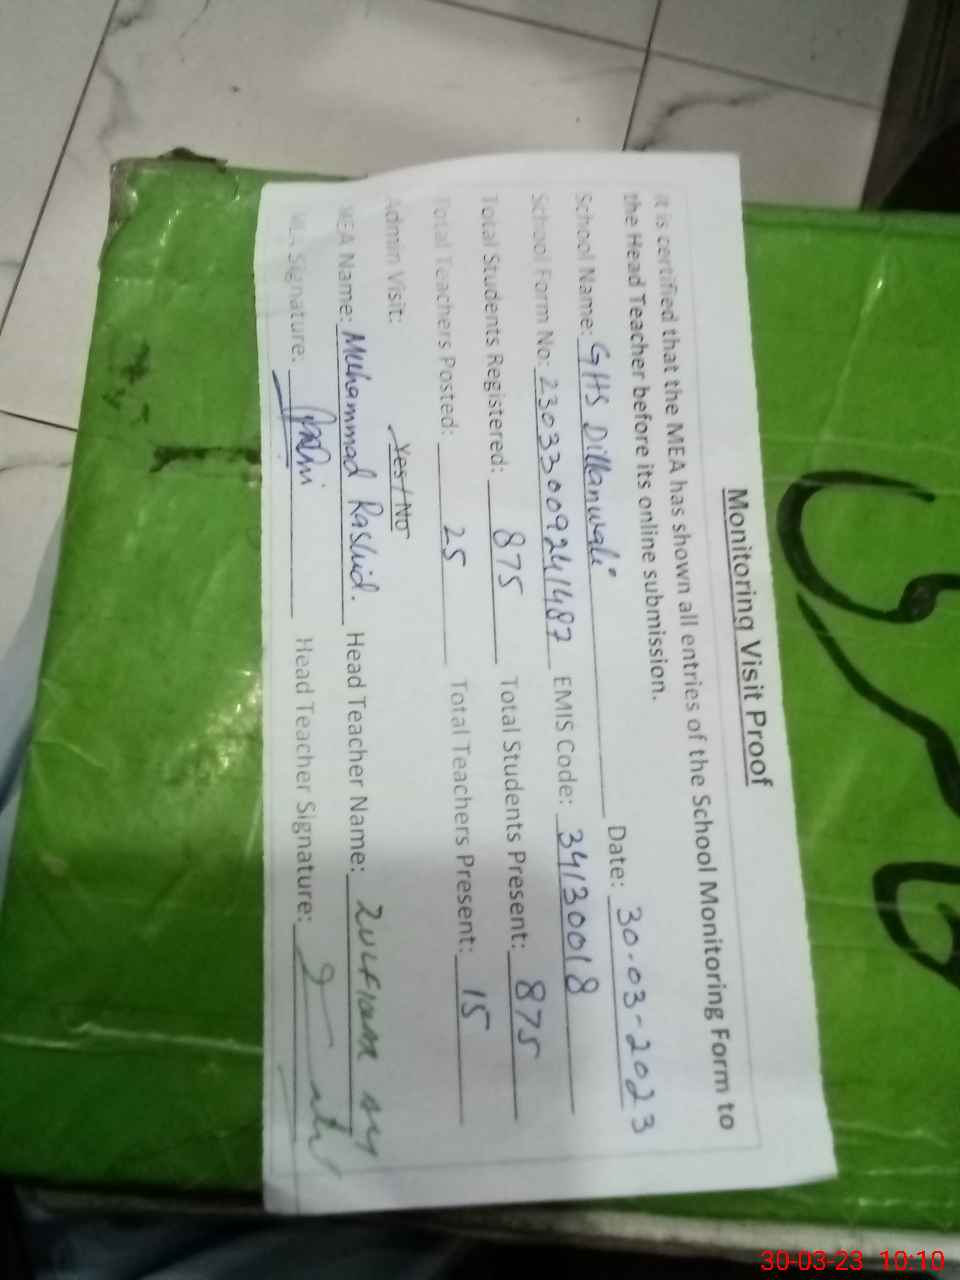 Monitoring Visit Proof
It is certified that the MEA has shown all entries of the School Monitoring Form to
the Head Teacher before its online submission.
School Name: GHS Dillanwali Date: 30-03-2023
School Form No: 23033009241487 EMIS Code: 34130018
Total Students Registered: 875 Total Students Present: 875
Total Teachers Posted: 25 Total Teachers Present: 15
Admin Visit: Yes/No
MEA Name: Muhammad Rashid. Head Teacher Name:
MEA Signature: Head Teacher Signature:
30-03-23 10:10